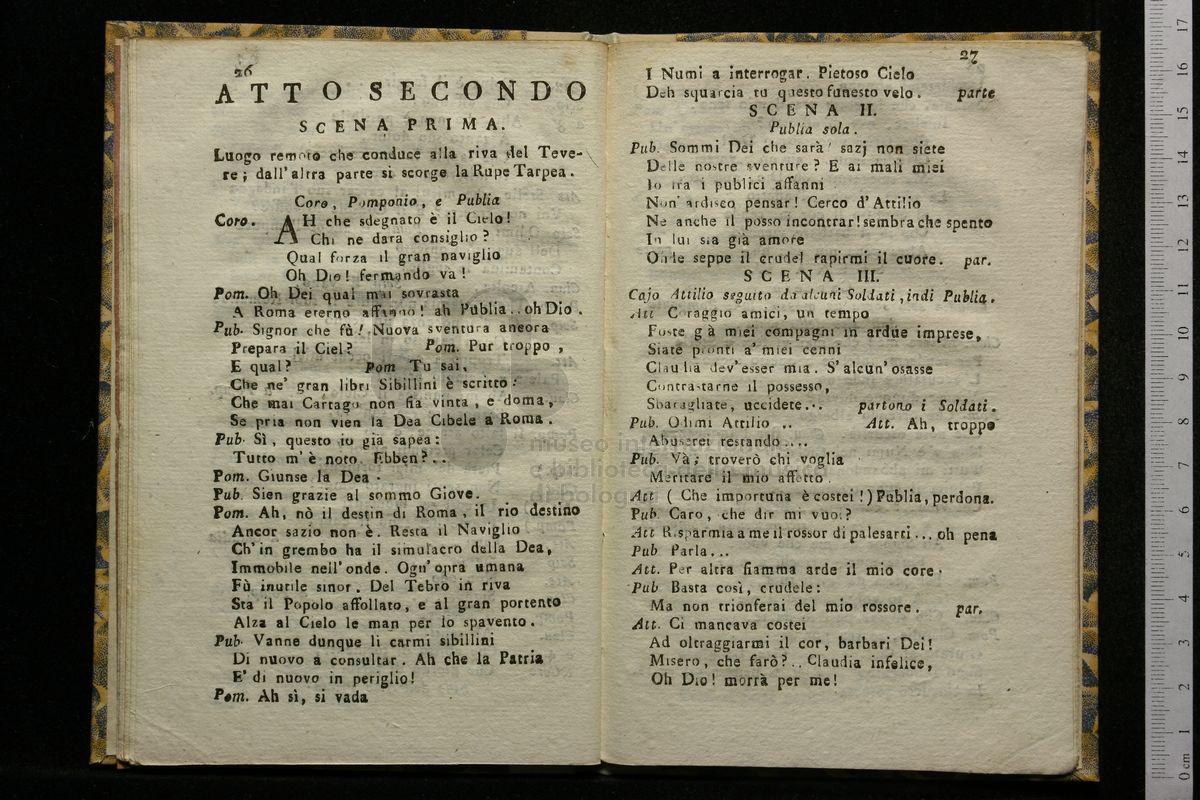 26
ATTO SECONDO
SCENA PRIMA.
Luogo remoto che conduce alla riva del Teve-
re; dall'altra parte si scorge la Rupe Tarpea.
Coro, Pomponio, e Publia
Coro. AH che sdegnato è il Cielo!
Chi ne dara consiglio?
Qual forza il gran naviglio
Oh Dio! fermando va!
Pom. Oh Dei qual mai sovrasta
A Roma eterno affanno! ah Publia.. oh Dio.
Pub. Signor che fù! Nuova sventura ancora
Prepara il Ciel? Pom. Pur troppo,
E qual? Pom Tu sai,
Che ne' gran libri Sibillini è scritto:
Che mai Cartago non fia vinta, e doma,
Se pria non vien la Dea Cibele a Roma.
Pub. Sì, questo io già sapea:
Tutto m'è noto. Ebben?..
Pom. Giunse la Dea.
Pub. Sien grazie al sommo Giove.
Pom. Ah, nò il destin di Roma, il rio destino
Ancor sazio non è. Resta il Naviglio
Ch'in grembo ha il simulacro della Dea,
Immobile nell'onde. Ogn'opra umana
Fù inutile sinor. Del Tebro in riva
Sta il Popolo affollato, e al gran portento
Alza al Cielo le man per lo spavento.
Pub. Vanne dunque li carmi sibillini
Di nuovo a consultar. Ah che la Patria
E' di nuovo in periglio!
Pom. Ah sì, si vada
27
I Numi a interrogar. Pietoso Cielo
Deh squarcia tu questo funesto velo. parte
SCENA II.
Publia sola.
Pub. Sommi Dei che sarà! sazj non siete
Delle nostre sventure? E ai mali miei
Io tra i publici affanni
Non' ardisco pensar! Cerco d'Attilio
Ne anche il posso incontrar! sembra che spento
In lui sia già amore
Onde seppe il crudel rapirmi il cuore. par.
SCENA III.
Cajo Attilio seguito da alcuni Soldati, indi Publia.
Att Coraggio amici, un tempo
Foste già miei compagni in ardue imprese,
Siate pronti a' miei cenni
Claudia dev'esser mia. S'alcun'osasse
Contrastarne il possesso,
Sbaragliate, uccidete... partono i Soldati.
Pub. Olimi Attilio .. Att. Ah, troppo
Abuserei restando....
Pub. Và; troverò chi voglia
Meritare il mio affetto.
Att (Che importuna è costei!) Publia, perdona.
Pub. Caro, che dir mi vuoi?
Att Risparmia a me il rossor di palesarti... oh pena
Pub Parla...
Att. Per altra fiamma arde il mio core.
Pub Basta così, crudele:
Ma non trionferai del mio rossore. par.
Att. Ci mancava costei
Ad oltraggiarmi il cor, barbari Dei!
Misero, che farò?.. Claudia infelice,
Oh Dio! morrà per me!
museo
e biblioteca della musica
di bologna